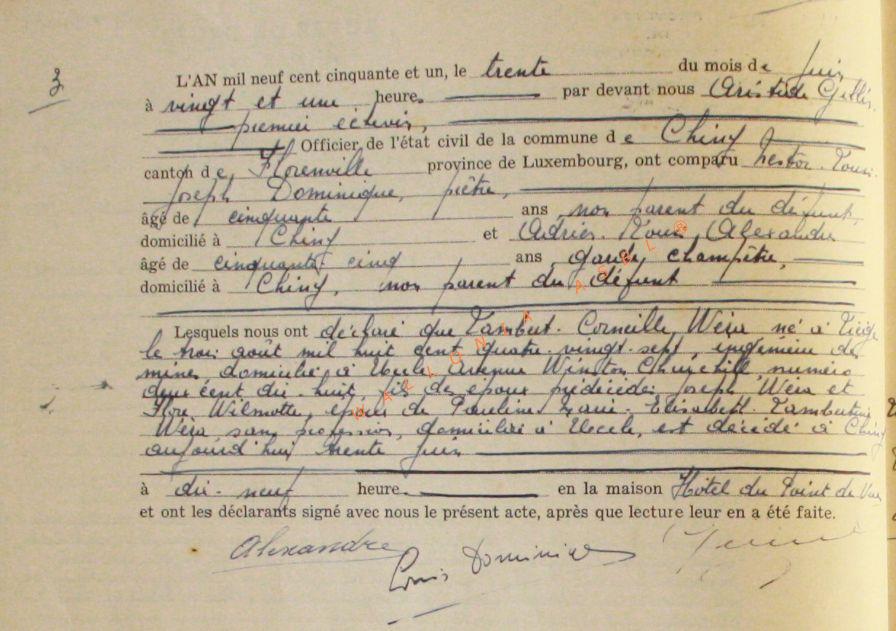 3
L'AN mil neuf cent cinquante et un, le trente du mois de Juin
à vingt et une heure. par devant nous Aristide
premier échevin,
Officier de l'état civil de la commune de Chiny
canton de Florenville province de Luxembourg, ont comparu Nestor-Louis
Joseph Dominique, prêtre,
âgé de cinquante ans, non parent du défunt,
domicilié à Chiny et Adrien-Louis Alexandre
âgé de cinquante cinq ans, garde champêtre,
domicilié à Chiny, non parent du défunt
Lesquels nous ont déclaré que Lambert-Corneille Wéra né à Liège
le trois août mil huit cent quatre-vingt-sept, ingénieur des
mines domicilié à Uccle Avenue Winston Churchill numéro
deux cent dix-huit, fils des époux prédécédés Joseph Wéra et
Flore Wilmotte, époux de Pauline-Marie-Elisabeth-Lambertine
Wéra sans profession, domiciliée à Uccle, est décédé à Chiny
aujourd'hui trente juin
à dix-neuf heure. en la maison Hôtel du Point de Vue
et ont les déclarants signé avec nous le présent acte, après que lecture leur en a été faite.
Alexandre
Louis Dominique